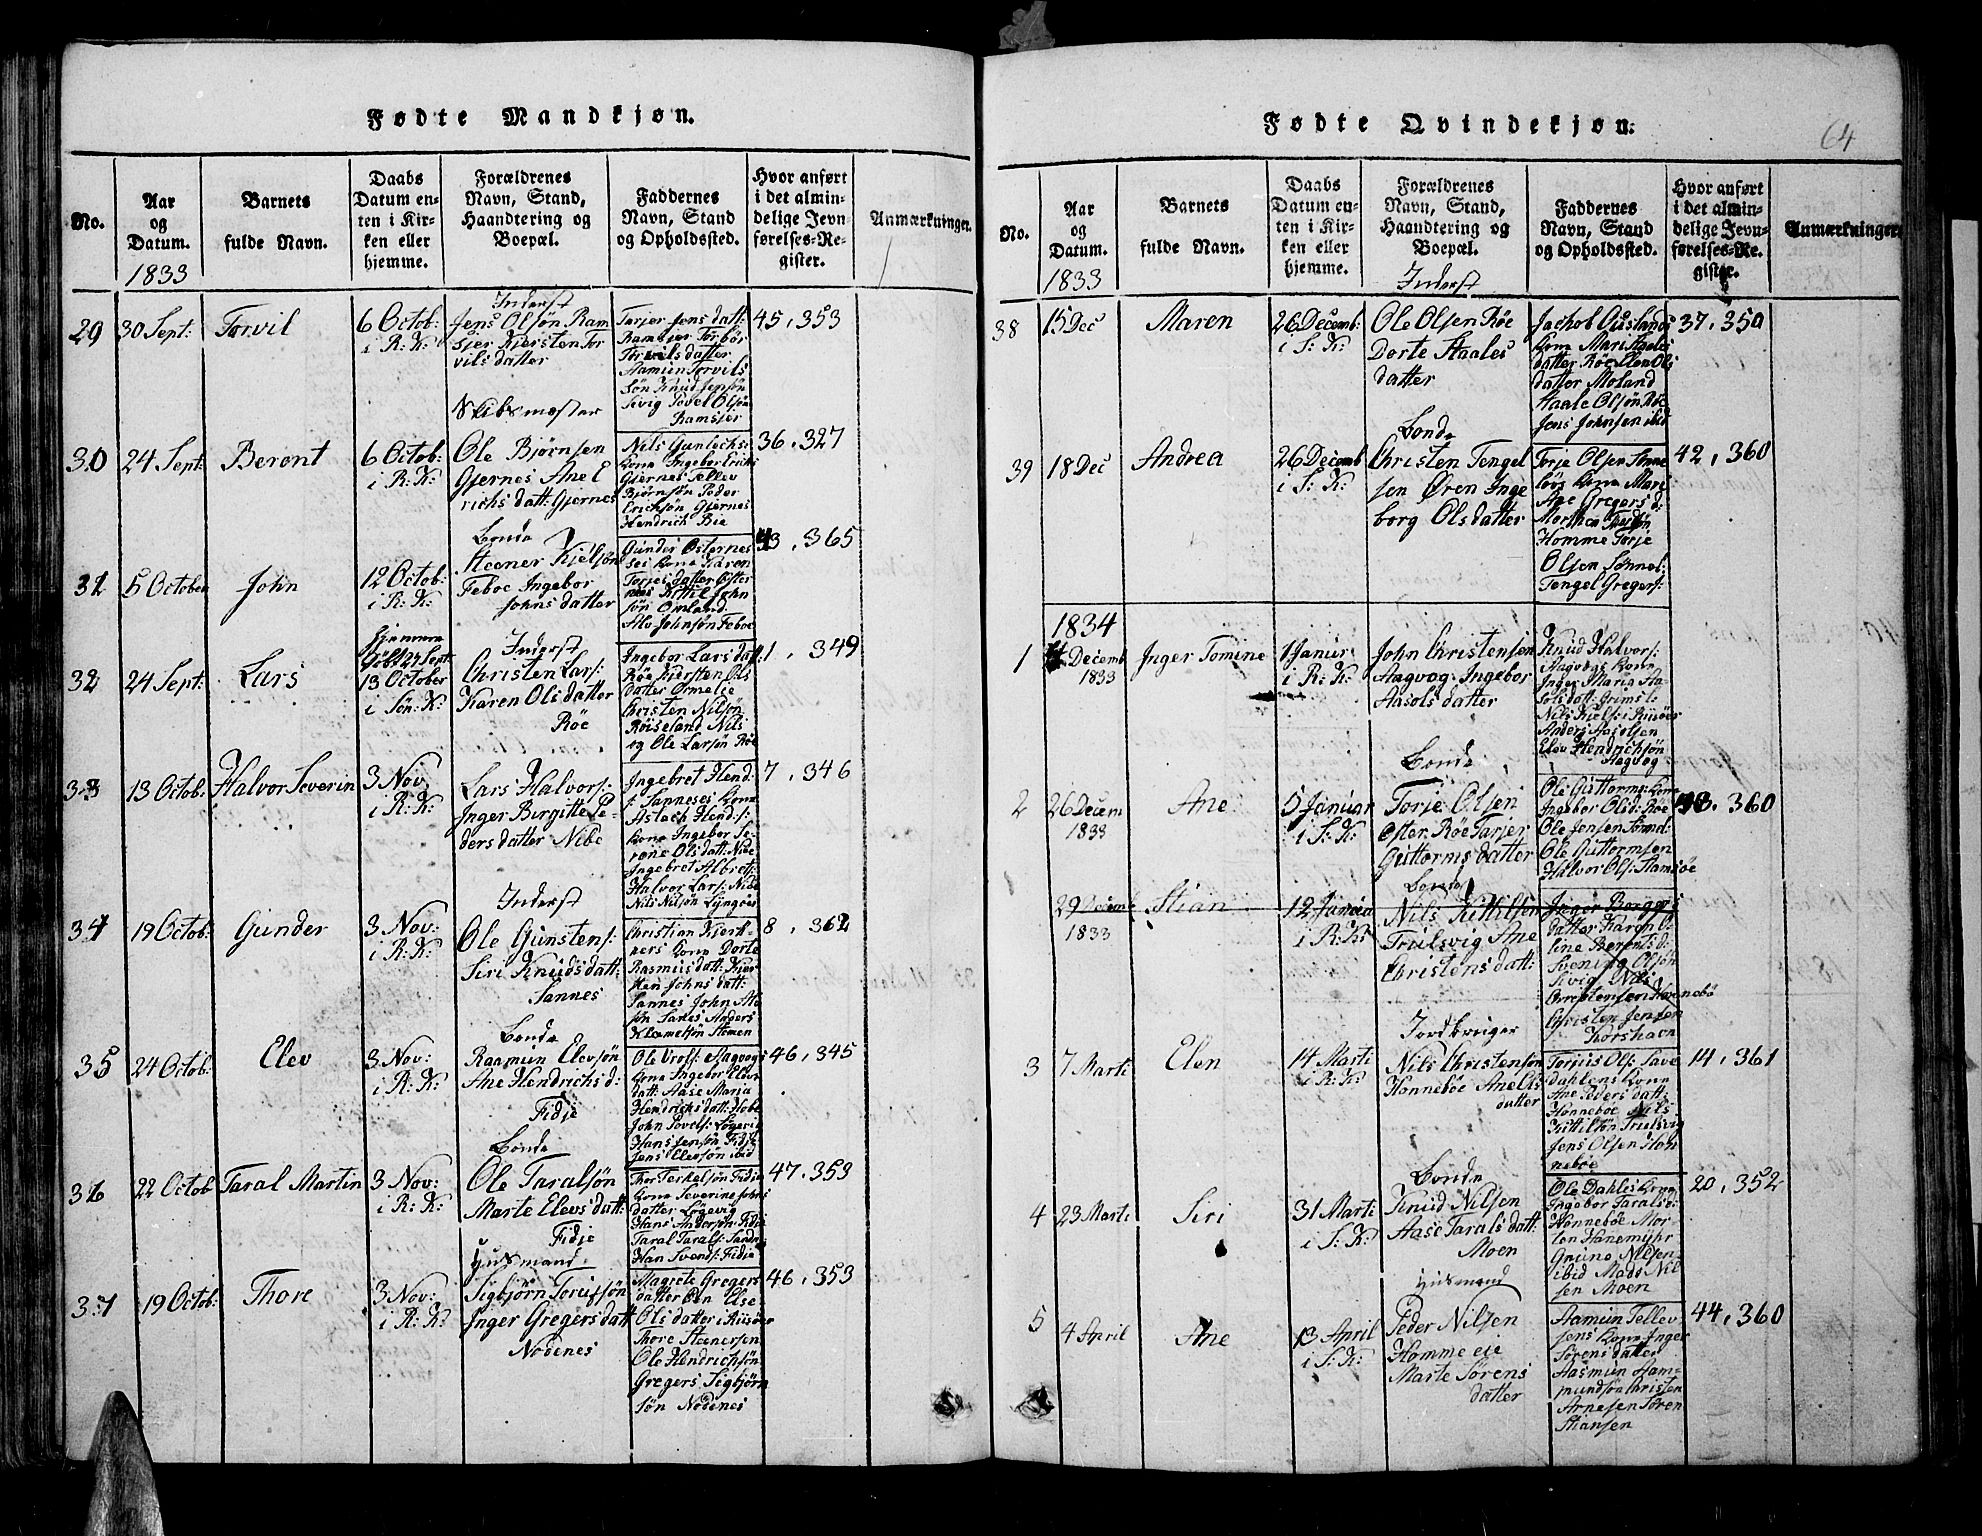 Fødte Mandkjøn.
No.
Aar
og
Datum.
1833
Barnets
fulde Navn.
Daabs
Datum en-
ten i Kir-
ken eller
hjemme.
Forældrenes
Navn, Stand,
Haandtering og
Boepæl.
Faddernes
Navn, Stand
og Opholdssted.
Hvor anført
i det almin-
delige Jevn
førelses-Re-
gister.
Anmærkninger.
29
30 Sept:
Torvil
6 Octob:
i R: K:
Inderst
Jens Olsøn Ram
sjer Kjersten Tor
vilsdatter
Tarjer Jens datt:
Ramsjer Torbor
Torvilsdatter
Aamun Torvils
søn Knud Jensøn
Sivig Povel Olsøn
Ramsjer
45, 353
30
24 Sept:
Beront
6 Octob:
i R: K:
Skibsmester
Ole Bjørnsen
Gjernes Ane E
richsdatt: Gjernes
Nils Gunlechs:
Kona Ingebor Erichs
Gjernes Tellev
Bjørnsøn Peder
Erichsøn Gjernes
Hendrich Bie
36, 327
31
5 October
John
12 Octob:
i R: K:
Bonde
Steener Kjelsøn
Feboe Ingebor
Johnsdatter
Gunder Østernes
ses Kona Karen
Torjesdatter Øster
nes Kittil John
søn Omland
Als Johnsøn Feboe
43, 365
32
24 Sept:
Lars
Hjemme
Døbt 27 Sept
13 October
i Søn: K:
Inderst
Christen Lars:
Karen Olsdatter
Røe
Ingebor Lars dat
Røe Kjersten Ols
datter Ørmelie
Christen Nilsøn
Røiseland Nils
og Ole Larsøn Røe
1, 349
33
13 Octob:
Halvor Severin
3 Nov
i R: K:
Lars Halvors:
Inger Birgitte Pe-
dersdatter Nibe
Ingebret Hend:
s: Sanneses Kona
Aslach Hend s:
Kona Ingebor Se-
rene Olsdatt: Nibe
Ingebret Albrets:
Halvor Lars: Nibe
Nils Nilsøn Lyngøer
7, 346
34
19 Octob:
Gunder
3 Nov:
i R: K:
Inderst
Ole Gunstens:
Siri Knudsdatt:
Sannes
Christian Kjerk-
ners Kona Dorte
Rasmusdatt: Kjer
sten Johns datt:
Sannes John Ols
søn Sanes Anders
Klemetsøn Stemen
8, 362
35
24 Octob:
Elev
3 Nov:
i R: K:
Bonde
Raamun Elevsøn
Ane Hendrichs d:
Fidje
Ole Vrols: Aagvogs
Kona Ingebor Elevs
datt: Aase Maria
Hendrichsdatt: Hobe
John Povels: Løgevig
Hans Jensøn Fidje
Jens Ellersøn ibid
46, 345
36
22 Octob
Taral Martin
3 Nov:
i R: K:
Bonde
Ole Taralsøn
Marte Elevsdatt:
Fidje
Thor Terkelsøn Fidjes
Kona Severine Johns
datter Løgevig
Hans Anderson: Fidje
Taral Tarals: Sandnes
Han Svends: Fidje
47, 353
37
19 Octob:
Thore
3 Nov:
i R: K:
Husmand
Sigbjørn Torissøn
Inger Gregersdatt
Nødenes
Magrete Gregers
datter Oen Else
Olsdatter i Riisøer
Thore Steenersen
Ole Hendrichsøn
Gregers Sigbjørn
søn Nødenes
46, 353
Fødte Qvindekjøn.
64
No.
Aar
og
Datum.
1833
Barnets
fulde Navn.
Daabs
Datum en-
ten i Kir-
ken eller
hjemme.
Forældrenes
Navn, Stand,
Haandtering og
Boepæl.
Faddernes
Navn, Stand
og Opholdssted.
Hvor anført
i det almin-
delige Jevn-
førelses-Re-
gister.
Anmærkninger
38
15 Dec
Maren
26 Decemb:
i S: K:
Inderst
Ole Olsen Røe
Dorte Staales
datter
Jachob Ouslands
Kona Mari Staales
datter Røe Ellen Ols
datter Moland
Staale Olsøn Røe
Jens Johnsen ibid
37, 350
39
18 Dec
Andrea
26 Decemb
i S: K:
Bonde
Christen Tengel
sen Øren Inge
borg Olsdatter
Torje Olsen Sønne
løvs Kona Mari
Ane Gregers d:
Morthen
Homme Torje
Olsen Sønnel:
Tengel Gregers:
42, 360
1834
1
Decemb
1833
Inger Tomine
1 Januar
i R: K:
John Christensen
Aagvog Ingebor
Aasolsdatter
Knud Halvors:
Aagvogs Kona
Inger Maria Aa-
solsdatt: Grimsl:
Nils Kjels: i Riisøer
Anders Aasolsen
Elev Hendrichsøn
Aagvog
2
26 Decem
1833
Ane
5 Januar
i S: K:
Bonde
Torje Olsen
Øster Røe Tarjer
Guttormsdatter
Ole Guttorms: Kona
Ingebor Olsd: Røe
Ole Jensen Sønnel:
Ole Guttormsen
Halvor Ols: Stamsøe
43, 360
29 Decemb
1833
Stian
12 Januar
i R: K:
Bonde
Nils Kittilsøn
Trulsvig Ane
Christensdatt:
Inger Borgers
datter Karen O-
line Berentsd:
Svening Olsøn
Sivig Nils
Christensen Hannebø
Christen Jensen
Korshavn
3
7 Marti
Elen
14 Marti
i R: K:
Jordbruger
Nils Christensøn
Hannebøe Ane Els
datter
Torjus Ols: Save
dahlens Kona
Ane Peders datt:
Hønneboe Nils
Kittilsøn Trulsvig
Jens Olsen Han
nebøe
14, 361
4
23 Marti
Siri
31 Marti
i S: K:
Bonde
Knud Nilsen
Aase Taralsdatt
Moen
Ole Dahles Kona
Ingebor Taralsd:
Hannebøe Mor-
ten Hanemyhr
Gnune Nilsen
ibid Mads Nil
sen Moen
20, 352
5
4 April
Ane
13 April
i S: K:
Husmand
Peder Nilsen
Homme eie
Marte Sørens
datter
Aamun Tellev
sens Kona Inger
Sørensdatter
Aasmun Aam-
mundsøn Christen
Arnesen Søren
Stiansen
44, 360